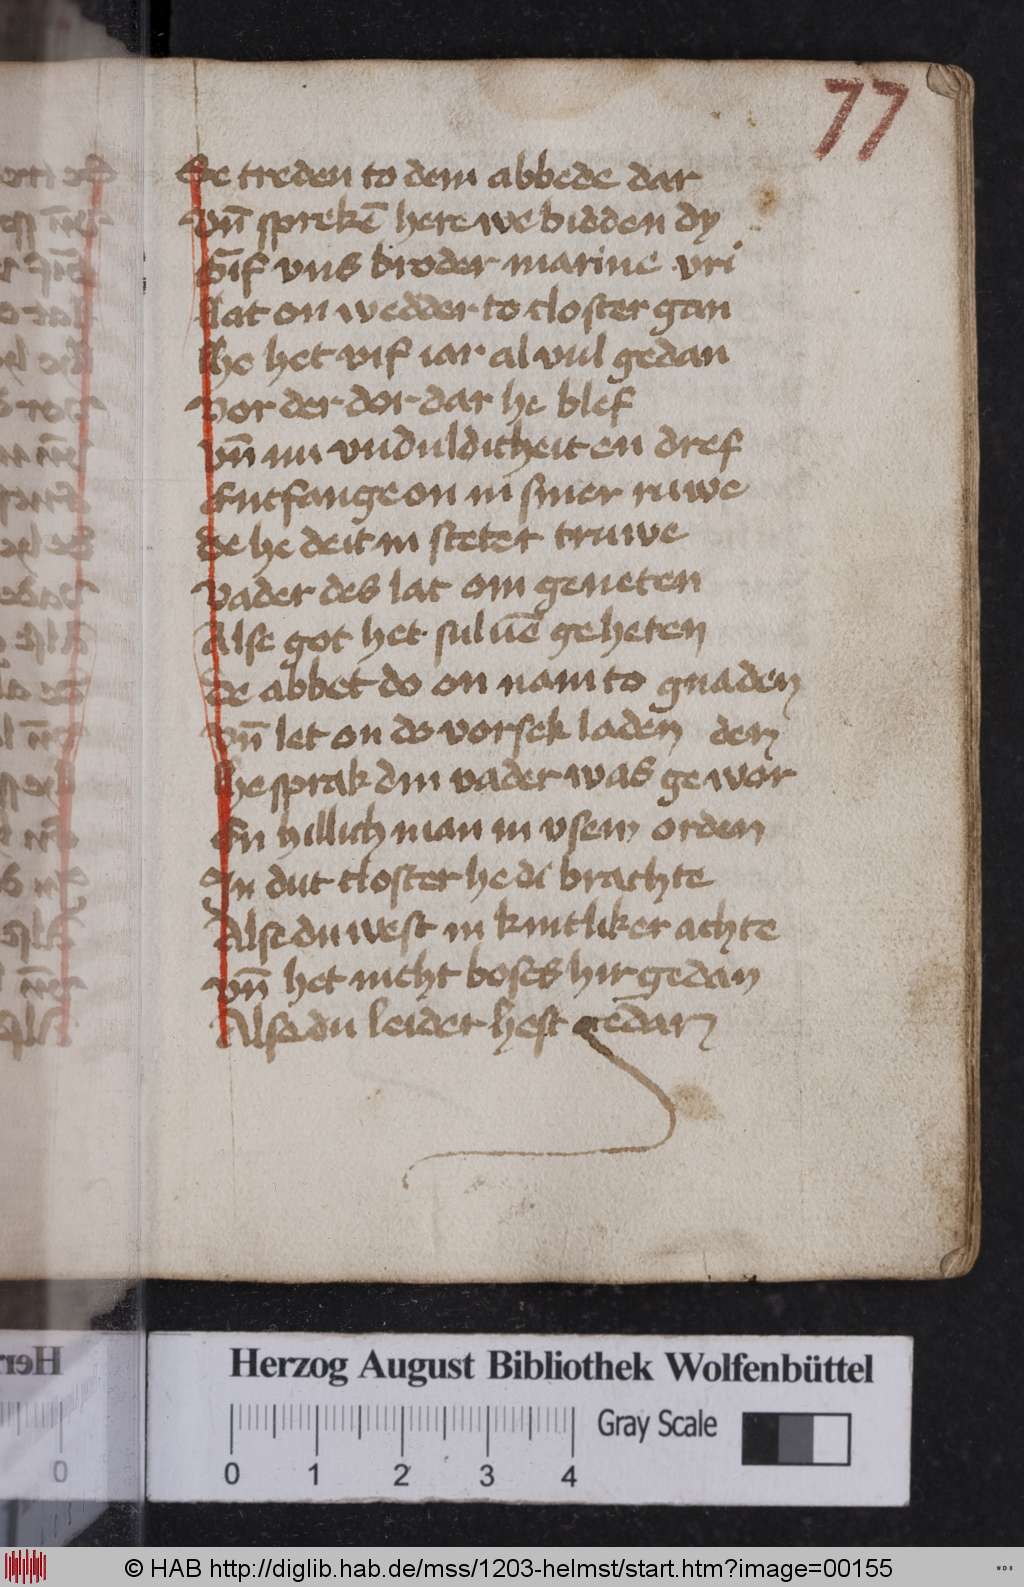 77
Se treden to dem abbede dar
vn̄ sprekē here we bidden dy
Gif vns broder marine vri
lat on wedder to closter gan
he het vif iar al vul gedan
vor der dor dar he blef
vn̄ nu vnduldicheit en dref
Entfange on in siner ruwe
de he deit in steter truwe
vader des lat om geneten
Alse got het suluē geheten
De abbet do on nam to gnaden
vn̄ let on do vor sek laden
he sprak din vader was gewor den
En hillich man in vsem orden
In dut closter he di brachte
Alse du west in kintliker achte
vn̄ het nicht boses hir gedan
Alse du leider hest gedan
Herzog August Bibliothek Wolfenbüttel
Gray Scale
0 1 2 3 4
© HAB http://diglib.hab.de/mss/1203-helmst/start.htm?image=00155